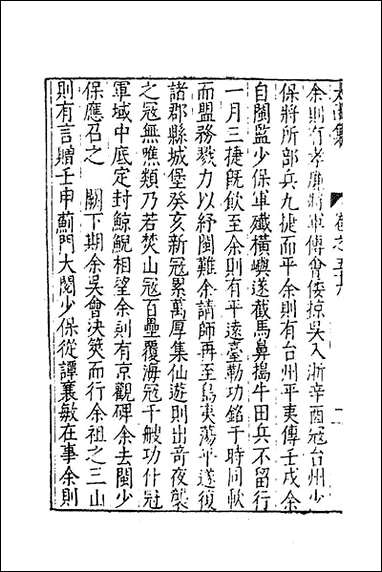 太函集 卷之五十六
余則有孝廉將軍傳會倭掠吳入浙辛酉寇台州少
保將所部兵九捷而平余則有台州平夷傳壬戌余
自閩監少保軍殲橫嶼遂截馬鼻搗牛田兵不留行
一月三捷旣飲至余則有平遠臺勒功銘于時同歃
而盟務戮力以紓閩難余請師再至島夷蕩平遂復
諸郡縣城堡癸亥新寇累萬厚集仙遊則出竒夜襲
之寇無噍類乃若焚山寇百壘覆海寇千艘功什冠
軍域中底定封鯨鯢相望余則有京觀碑余去閩少
保應召之 闕下期余吳會決筴而行余祖之三山
則有言贈壬申薊門大閱少保從譚襄敏在事余則